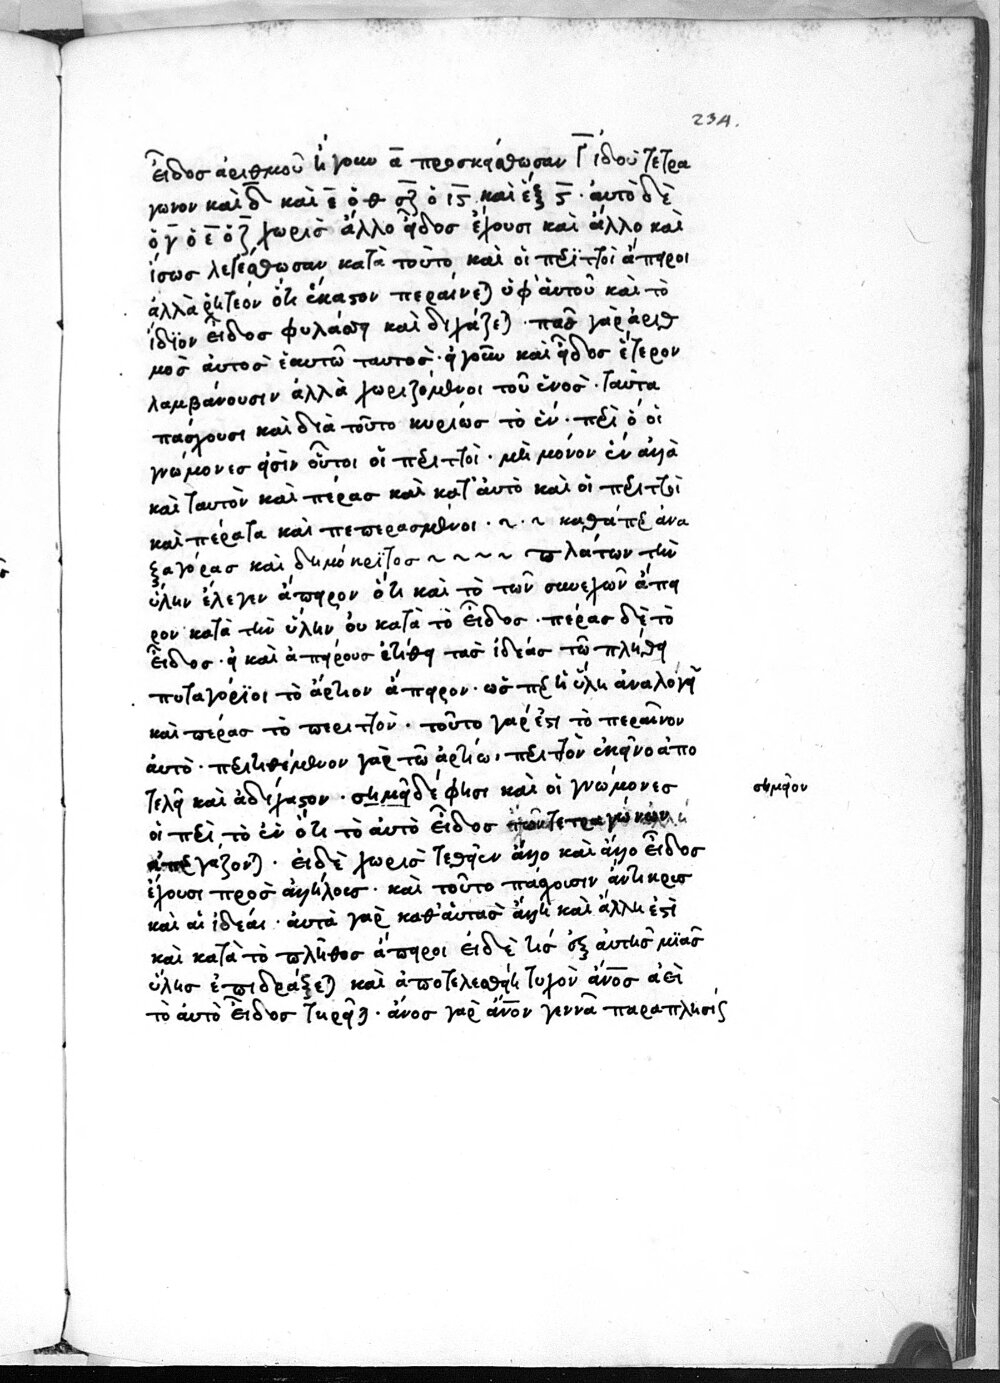 234.
εἶδος ἀριθμοῦ ἡ γοῦν ᾱ προσκείσθωσαν Γ̄ ἰδοὺ τετρά
γωνον καὶ δ̄ καὶ ε̄ ὁ θ ζ̄ ὁ ις̄ καὶ ἑξ ς̄ · αὐτὸ δὲ
ὁ γ̄ ὁ ε̄ ὁ ζ̄ χωρὶς ἄλλο εἶδος ἔχουσι καὶ ἄλλο καὶ
ἴσως λεγέσθωσαν κατὰ τοῦτο καὶ οἱ περιττοὶ ἄπειροι
ἀλλὰ ῥητέον ὅτι ἕκαστον περαίνεται ὑφ' αὑτοῦ καὶ τὸ
ἴδιον εἶδος φυλάσσει καὶ διχάζεται · πᾶς γὰρ ἀριθ
μὸς αὐτὸς ἑαυτῶ ταυτὸς · εἰ γοῦν καὶ εἶδος ἕτερον
λαμβάνουσιν ἀλλὰ χωριζόμενοι τοῦ ἑνὸς · ταῦτα
πάσχουσι καὶ διὰ τοῦτο κυρίως τὸ ἕν · περὶ ὃ οἱ
γνώμονες εἰσὶν οὗτοι οἱ περιττοί · μὴ μόνον ἓν ἀλλὰ
καὶ ταυτὸν καὶ πέρας καὶ κατ' αὐτὸ καὶ οἱ περιττοὶ
καὶ πέρατα καὶ πεπερασμένοι · ~ · ~ καθάπερ ἀνα
ξαγόρας καὶ δημόκριτος ~ ~ ~ ~ πλάτων τὴν
ὕλην ἔλεγεν ἄπειρον ὅτι καὶ τὸ τῶν συνεχῶν ἄπει
ρον κατὰ τὴν ὕλην οὐ κατὰ τὸ εἶδος · πέρας δὲ τὸ
εἶδος · εἰ καὶ ἀπείρους ἐτίθει τὰς ἰδέας τῶ πλήθει
πυταγόρειοι τὸ ἄρτιον ἄπειρον · ὥσπερ ἡ ὕλη ἀναλογεῖ
καὶ πέρας τὸ περιττὸν · τοῦτο γάρ ἐστι τὸ περαῖνον
αὐτὸ · περιτιθέμενον γὰρ τῶ ἀρτίω, περιττὸν ἐκεῖνο ἀπο
τελεῖ καὶ ἀδίχαστον · σημεῖ δέ φησι καὶ οἱ γνώμονες
οἱ περὶ τὸ ἓν ὅτι τὸ αὐτὸ εἶδος τετραγώνων
γάζονται · εἰ δὲ χωρὶς τεθεῖεν ἄλλο καὶ ἄλλο εἶδος
ἔχουσι πρὸς ἀλλήλους · καὶ τοῦτο πάσχουσιν ἄντικρυς
καὶ αἱ ἰδέαι · αὐτὰ γὰρ καθ' αὑτὰς ἄλλη καὶ ἄλλη ἐστὶ
καὶ κατὰ τὸ πλῆθος ἄπειροι εἰ δὲ τις ἐξ αὐτῆς μιᾶς
ὕλης ἐπιδράξεται καὶ ἀποτελεσθείη τυχὸν ἄν̄ος ἀεὶ
τὸ αὐτὸ εἶδος τηρεῖται · ἄνος γὰρ ἄν̄ον γεννᾶ παραπλησίως
σημεῖον